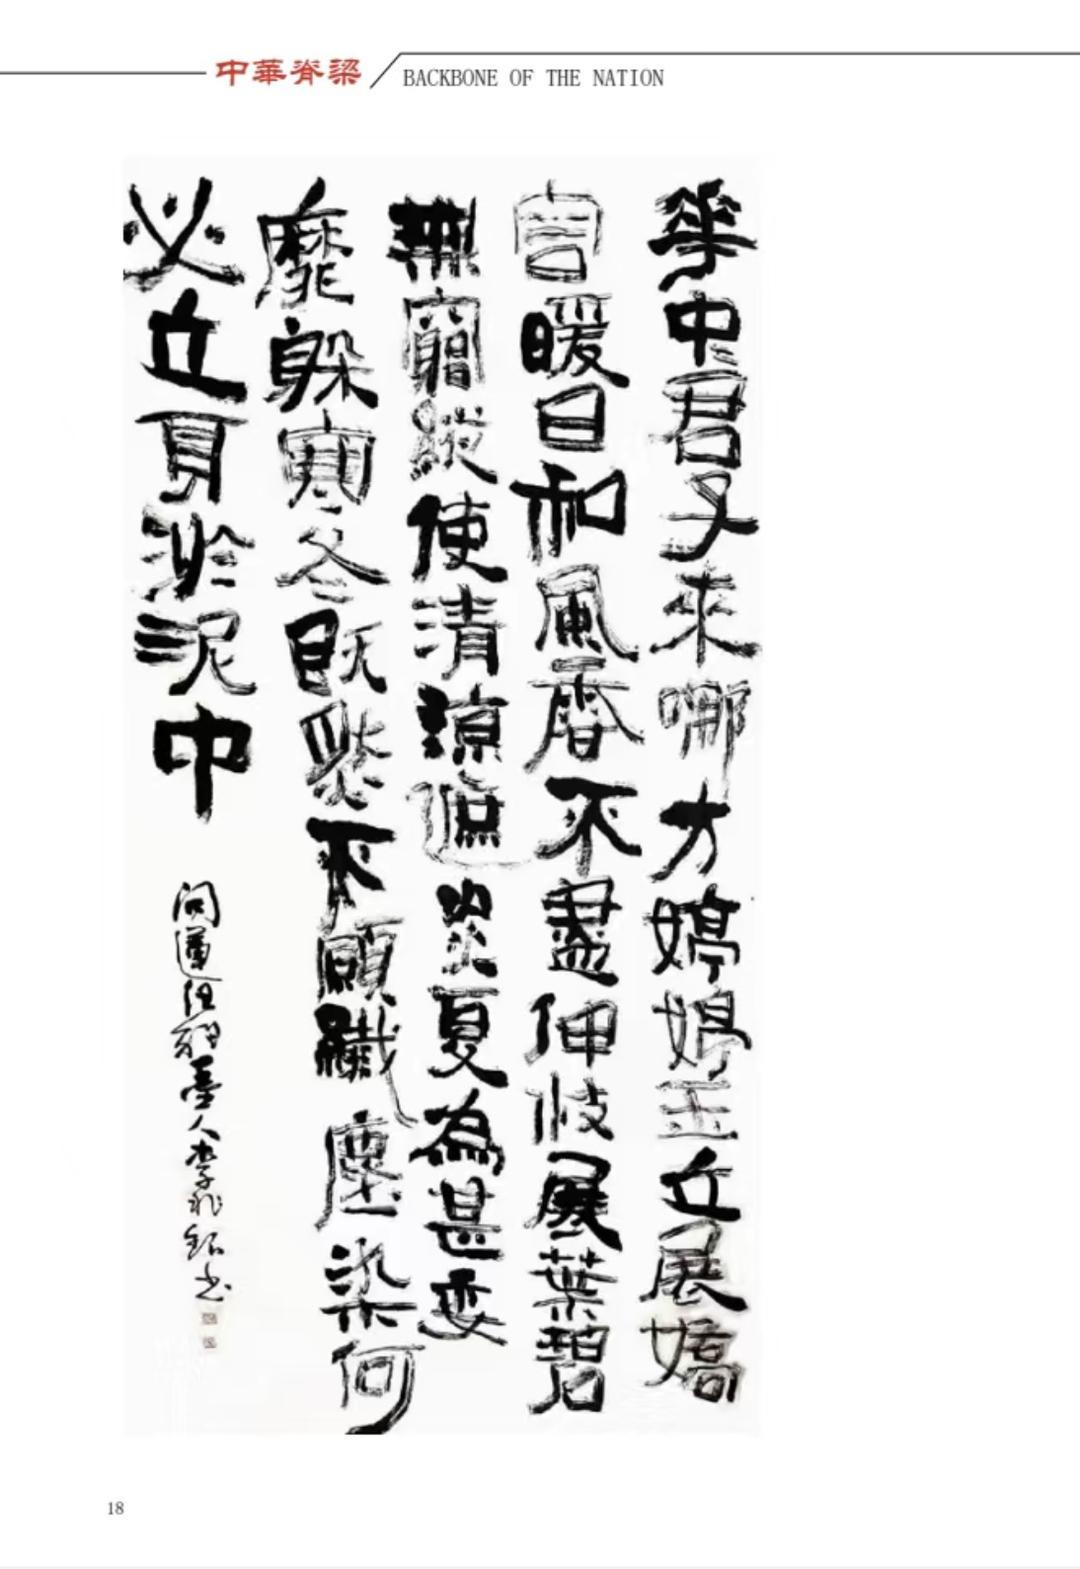 中華脊梁 BACKBONE OF THE NATION
華中君子來哪方婷婷玉立展嬌
容暖日和風香不盡伸枝展葉碧
無窮縱使清涼遮炎夏為甚委
靡躲寒冬既然不願纖塵染何
必立身淤泥中
問蓮 墨人李 書
18